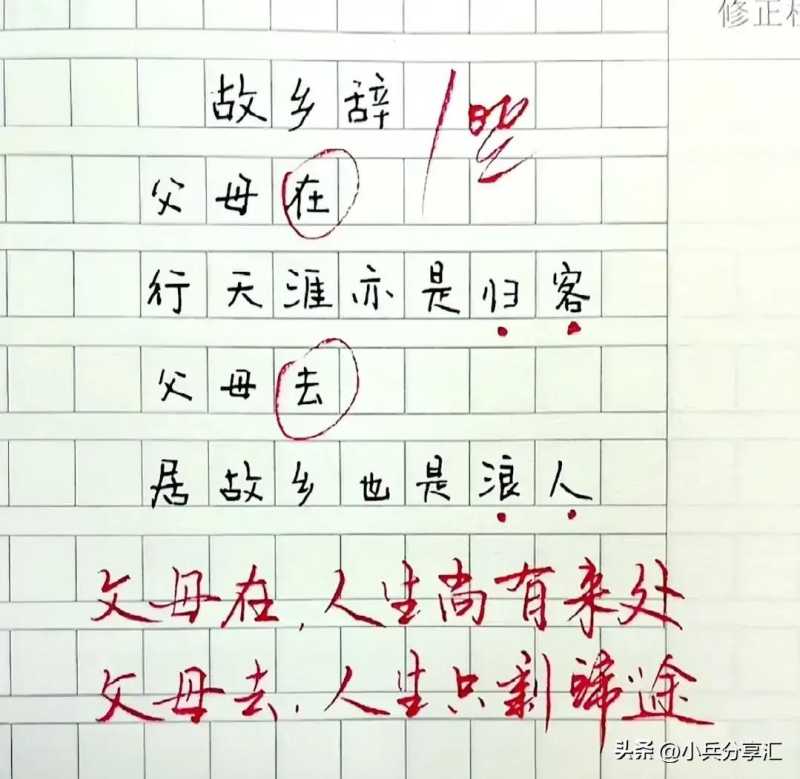 修正
故乡辞
父母在
行天涯亦是归客
父母去
居故乡也是浪人
父母在,人生尚有来处
父母去,人生只剩歸途
头条 @小兵分享汇